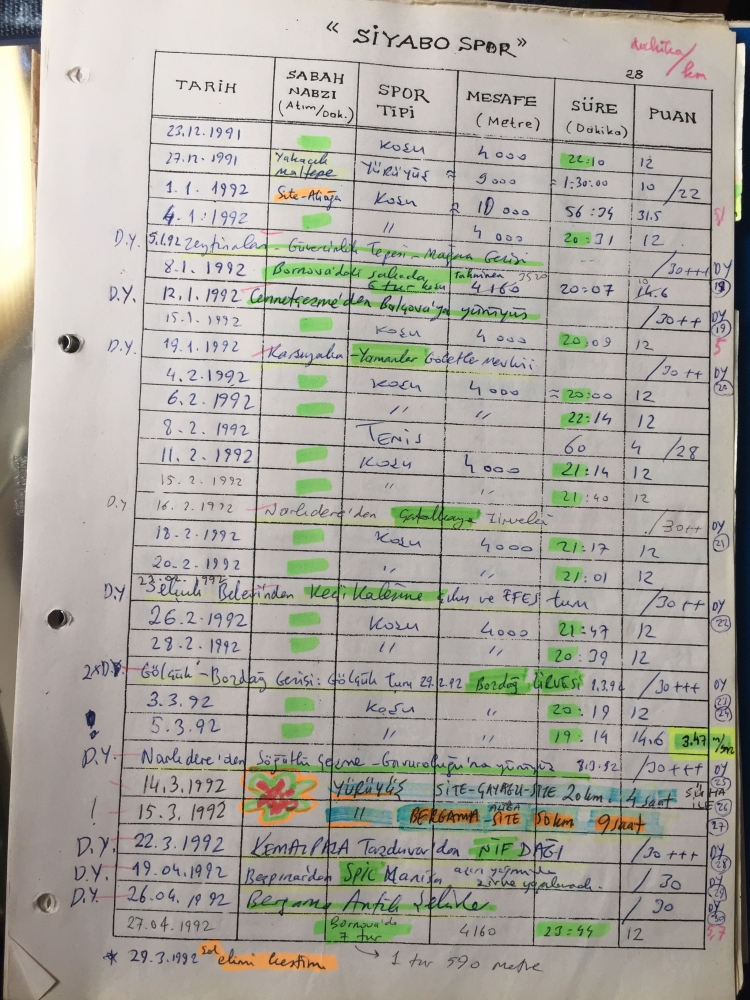 "SİYABO SPOR"
dakika/km
28
TARİH SABAH NABZI (Atım/Dak.) SPOR TİPİ MESAFE (Metre) SÜRE (Dakika) PUAN
23.12.1991 KOŞU 4000 22:10 12
27.12.1991 Yakacık Maltepe YÜRÜYÜŞ ≈ 9000 ≈ 1:30:00 10 /22
1.1.1992 Site-Aliağa KOŞU ≈ 10 000 56:34 31.5
4.1.1992 " 4 000 20:31 12
D.Y. 5.1.92 Zeytinalan - Güvercinlik Tepesi - Mağara Gezisi /30+++ DY
8.1.1992 Bornova'daki sahada 6 tur koşu Tahminen 3520 4160 20:07 14.6 18
D.Y. 12.1.1992 Cennetçeşme'den Balçova'ya yürüyüş /30++ DY 19
15.1.1992 KOŞU 4000 20:09 12 5
D.Y. 19.1.1992 Karşıyaka - Yamanlar Göletler Mevkii /30++ DY 20
4.2.1992 KOŞU 4000 ≈ 20:00 12
6.2.1992 " " 22:14 12
8.2.1992 TENİS 60 4 /28
11.2.1992 KOŞU 4000 21:14 12
15.2.1992 " " 21:40 12
D.Y 16.2.1992 Narlıdere'den Çatalkaya Zirvesi /30++ DY 21
18.2.1992 KOŞU 4000 21:17 12
20.2.1992 " " 21:01 12
D.Y 23.02.1992 Selçuk Belevi'nden Keçi Kalesine çıkış ve EFES turu /30++ DY 22
26.2.1992 KOŞU 4000 21:47 12
28.2.1992 " " 20:39 12
2xD.Y. Gölcük - Bozdağ Gezisi: Gölcük turu 29.2.92 Bozdağ ZİRVESİ 1.3.92 /30+++ DY 23
3.3.92 KOŞU " 20:19 12 24
! 5.3.92 " " 19:14 14.6 3.47 m/sn
D.Y. Narlıdere'den Söğütlü çeşme - Gavuroluğu'na yürüyüş 8.3.92 /30+++ DY 25
14.3.1992 YÜRÜYÜŞ SİTE-ÇAYAĞZI-SİTE 20km. 4 saat 26
! 15.3.1992 " BERGAMA ALİAĞA -SİTE 50km 9 saat 27
D.Y. 22.3.1992 KEMALPAŞA Tazduvar'dan NİF DAĞI /30+++ DY 28
D.Y. 19.04.1992 Beşpınar'dan SPİL Manisa zirve yapılamadı. /30 DY 29
D.Y. 26.04.1992 Bergama Antik Şehirler /30 DY 30
27.04.1992 Bornova'da 7 tur 4160 23:44 12 5,7
* 29.3.1992 Sol elimi kestim → 1 tur 590 metre